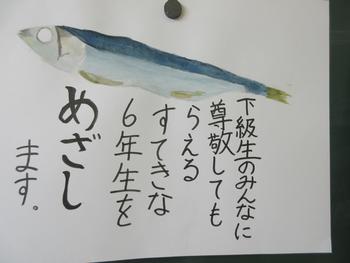 下級生のみんなに
尊敬しても
らえる
すてきな
6年生を
めざし
ます。